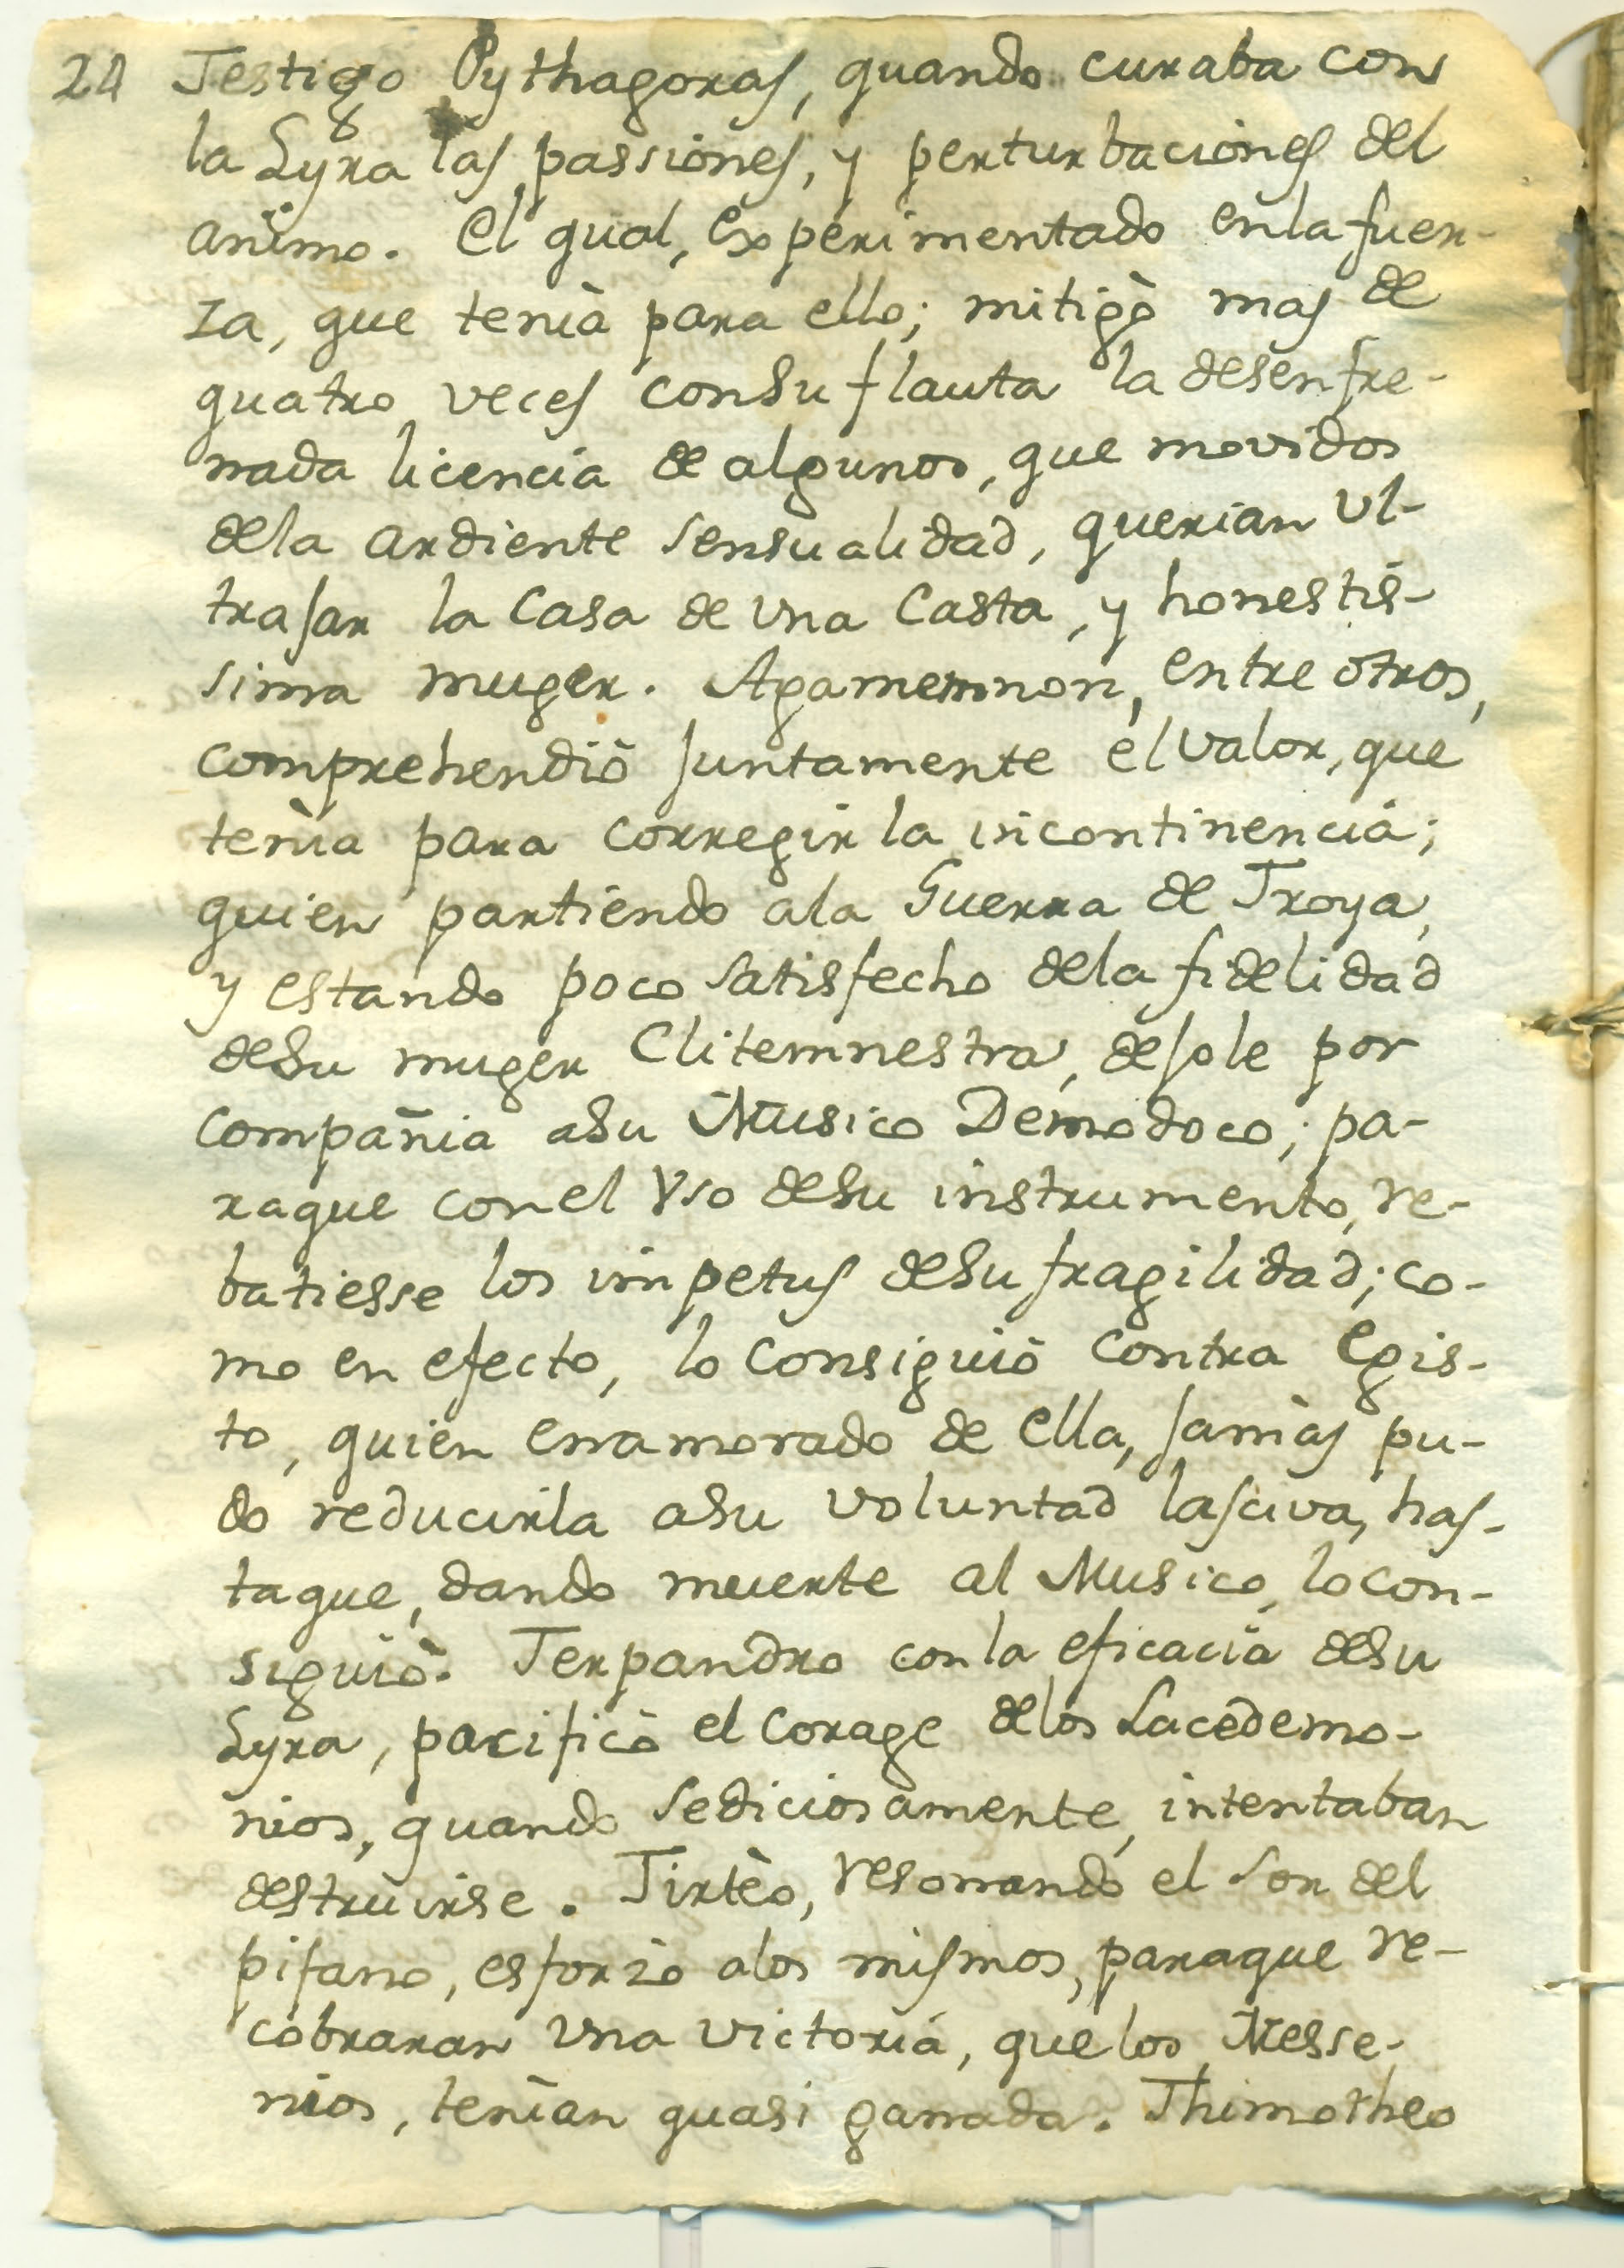 24 Testigo Pythagoras, quando curaba con
la Lyra las passiones, y perturbaciones del
animo. El qual, experimentado en la fuer-
za, que tenià para ello; mitigò mas de
quatro veces con su flauta la desenfre-
nada licencia de algunos, que movidos
de la ardiente sensualidad, querian Vl-
trajar la Casa de Vna Casta, y honestis-
sima muger. Agamemnon, entre otros,
comprehendiò juntamente el valor, que
tenìa para corregir la incontinencia;
quien partiendo a la Guerra de Troya,
y estando poco satisfecho de la fidelidad
de su muger Clitemnestra, dejole por
compañia a su Musico Demodoco; pa-
raque con el Vso de su instrumento, re-
batiesse los impetus de su fragilidad; co-
mo en efecto, lo consiguiò contra Egis-
to, quien enamorado de ella, jamàs pu-
do reducirla a su voluntad lasciva, has-
taque, dando muerte al Musico, lo con-
siguiò. Terpandro con la eficacia de su
Lyra, pacificò el corage de los Lacedemo-
nios, quando sediciosamente, intentaban
destruirse. Tirtèo, resonando el son del
pifano, esforzò a los mismos, paraque re-
cobraran Vna victoria, que los Messe-
nios, tenìan quasi ganada. Thimotheo